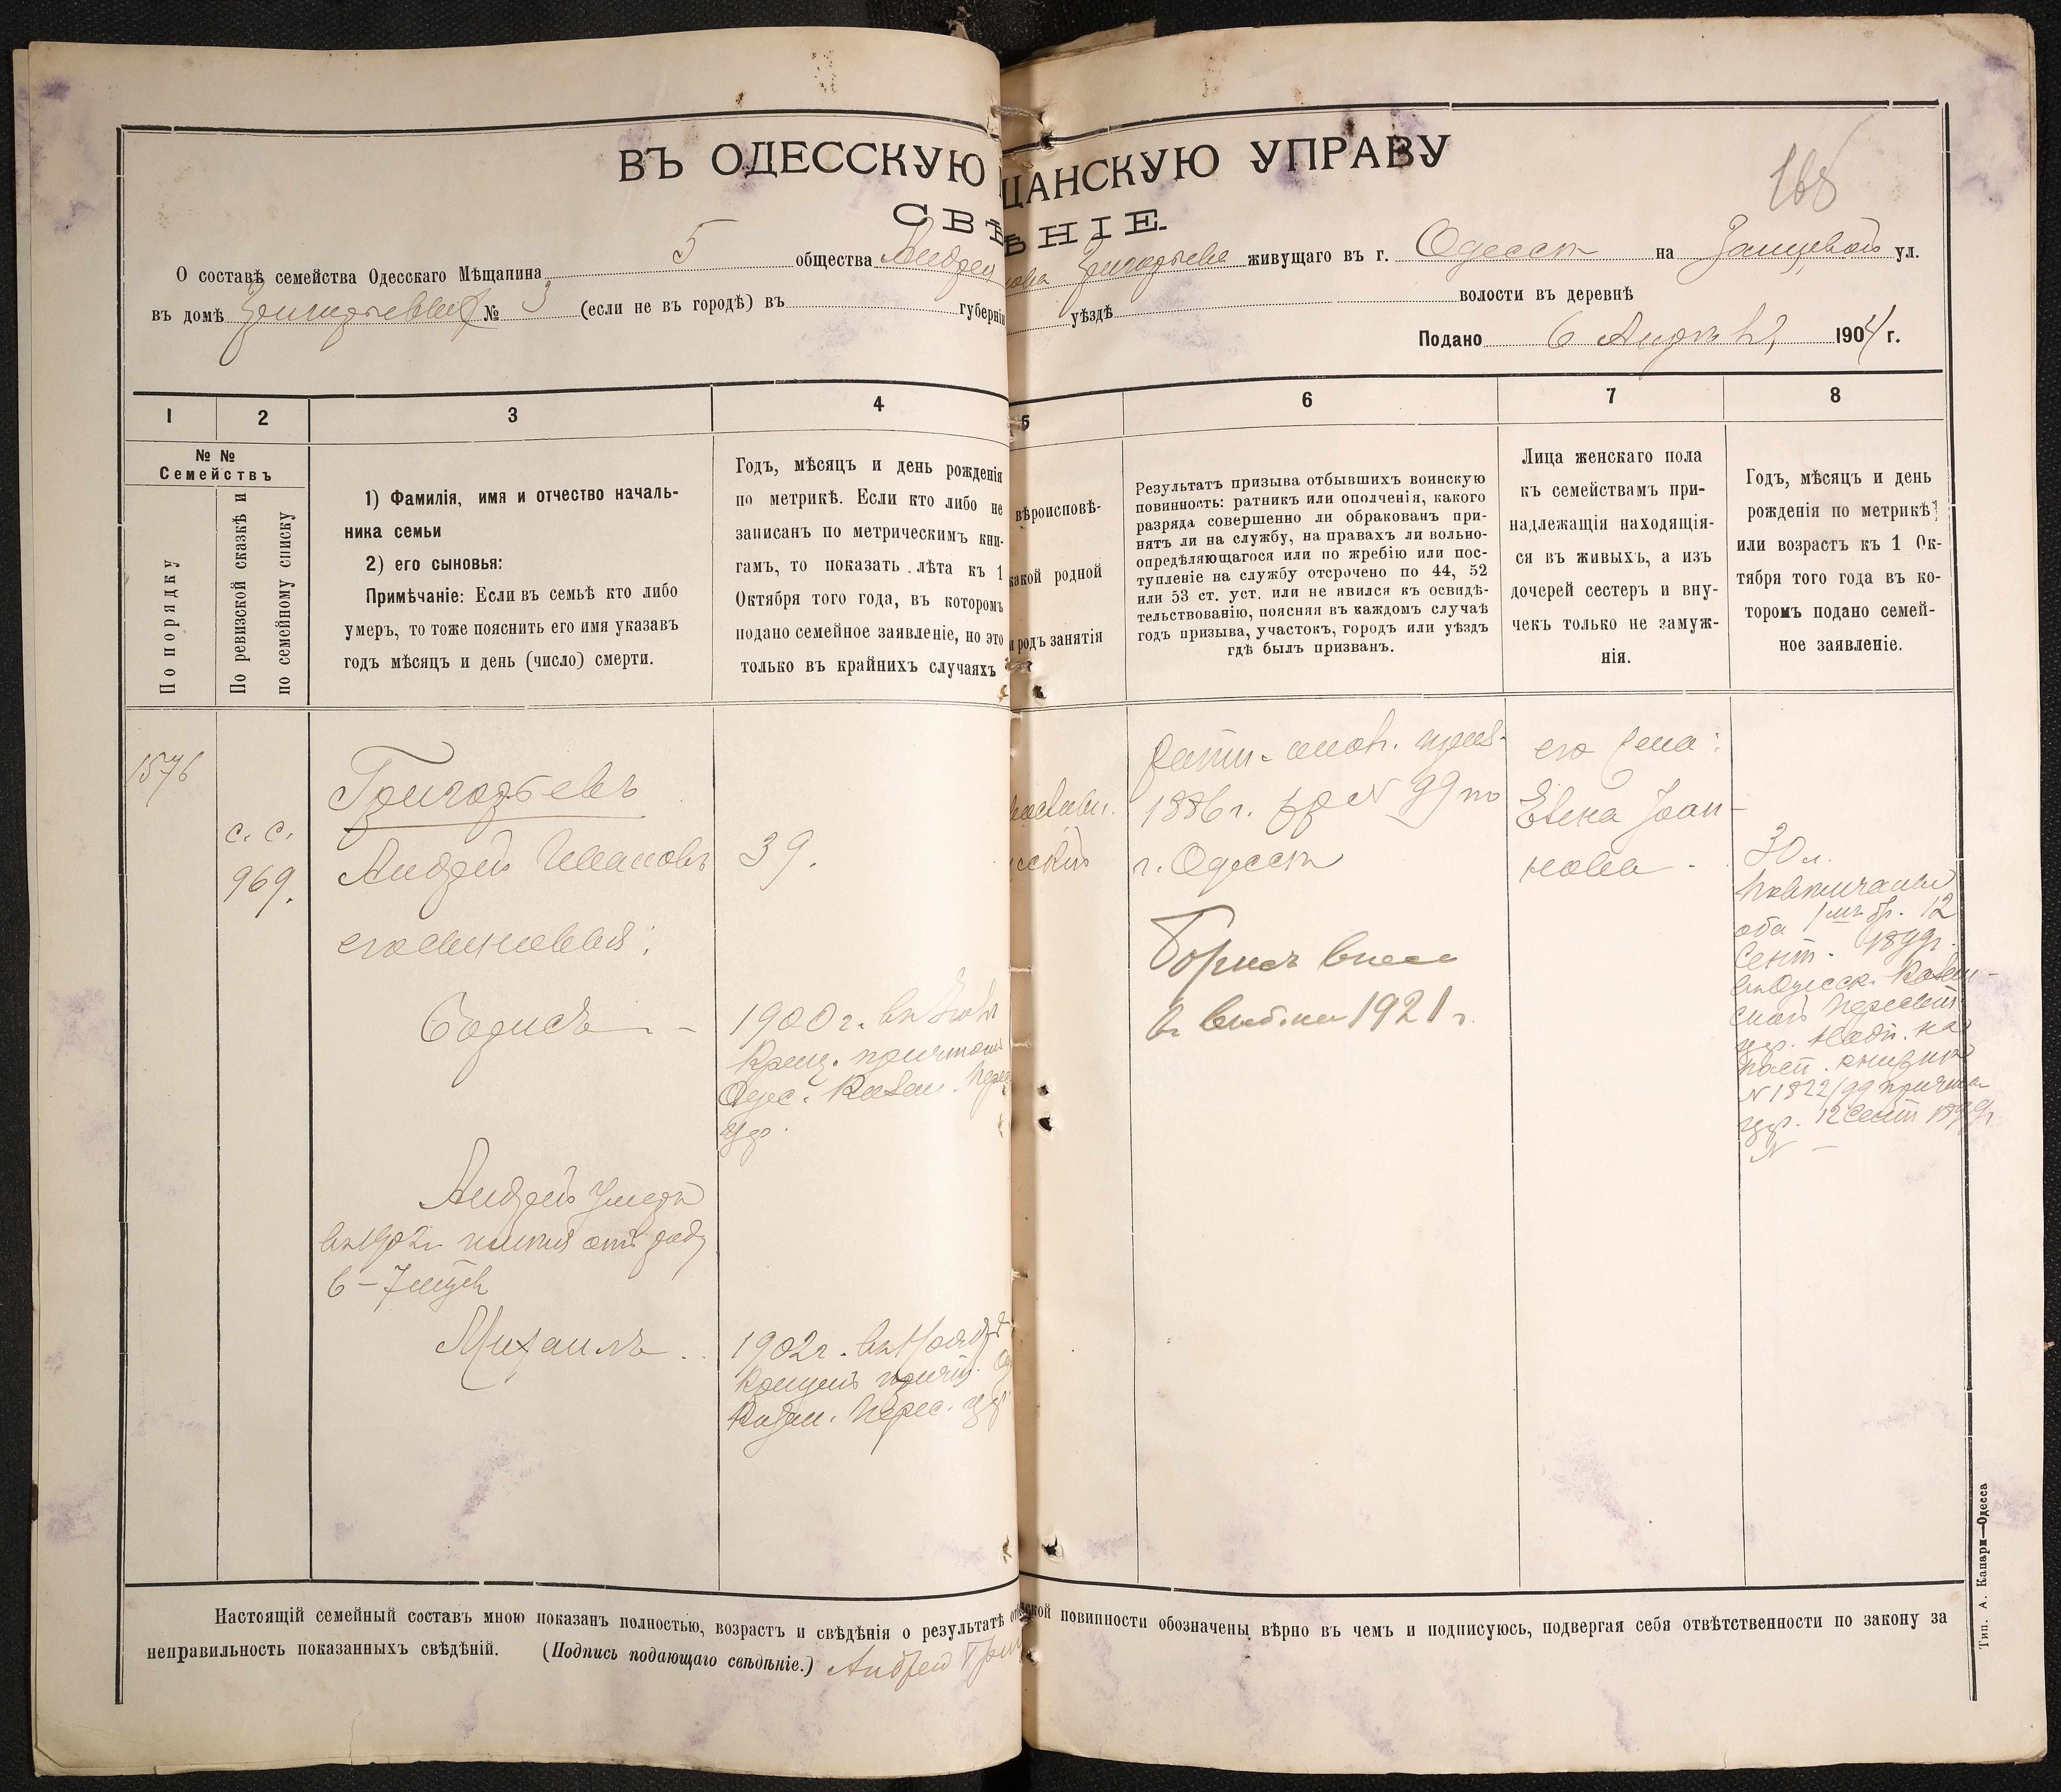 ВЪ ОДЕССКУЮ ЩАНСКУЮ УПРАВУ
165
СВѢ ѢНІЕ.
О составѣ семейства Одесскаго Мѣщанина 5 общества Андрея нова Григорьева живущаго въ г. Одессѣ на ул.
въ домѣ № 3 (если не въ городѣ) въ губерніи уѣздѣ волости въ деревнѣ
Подано 6 1904 г.
1 2 3 4 5 6 7 8
№ №
Семействъ
По порядку
По ревизской сказкѣ и
по семейному списку
1) Фамилія, имя и отчество началь-
ника семьи
2) его сыновья:
Примѣчаніе: Если въ семьѣ кто либо
умеръ, то тоже пояснить его имя указавъ
годъ мѣсяцъ и день (число) смерти.
Годъ, мѣсяцъ и день рожденія
по метрикѣ. Если кто либо не
записанъ по метрическимъ кни-
гамъ, то показать лѣта къ 1
Октября того года, въ которомъ
подано семейное заявленіе, но это
только въ крайнихъ случаяхъ
вѣроисповѣ-
какой родной
и родъ занятія
Результатъ призыва отбывшихъ воинскую
повинность: ратникъ или ополченія, какого
разряда совершенно ли обракованъ при-
нятъ ли на службу, на правахъ ли вольно-
опредѣляющагося или по жребію или пос-
тупленіе на службу отсрочено по 44, 52
или 53 ст. уст. или не явился къ освидѣ-
тельствованію, поясняя въ каждомъ случаѣ
годъ призыва, участокъ, городъ или уѣздъ
гдѣ былъ призванъ.
Лица женскаго пола
къ семействамъ при-
надлежащія находящія-
ся въ живыхъ, а изъ
дочерей сестеръ и вну-
чекъ только не замуж-
нія.
Годъ, мѣсяцъ и день
рожденія по метрикѣ
или возрастъ къ 1 Ок-
тября того года въ ко-
торомъ подано семей-
ное заявленіе.
1576
с. с.
969.
Григорьевъ
Андрей Ивановъ
его сыновья:
Борисъ
Андрей умеръ
въ 1902 г. имѣя отъ роду
6–7 мѣсяц
Михаилъ
39.
1900 г. въ Іюлѣ
Крещ. причтомъ
Одес. Казан. Перес
цер.
1902 г. въ Ноябрѣ
Крещенъ причт. Од
Казан. Перес. цер
1886 г. № 99 по
г. Одессѣ
Борисъ внес
в 1921 г.
его жена:
Елена Іоан-
нова
30 л.
Повѣнчаны
оба 1мъ бр. 12
Сент. 1899 г.
въ Одесск. Казан-
ской Пересып
цер.
№ 1822/99 причта
цер. 12 Сент 1899 г.
№ –
Настоящій семейный составъ мною показанъ полностью, возрастъ и свѣдѣнія о результатѣ ской повинности обозначены вѣрно въ чемъ и подписуюсь, подвергая себя отвѣтственности по закону за
неправильность показанныхъ свѣдѣній. (Подпись подающаго свѣдѣніе.) Андрей Гри
Тип. А. Капари—Одесса